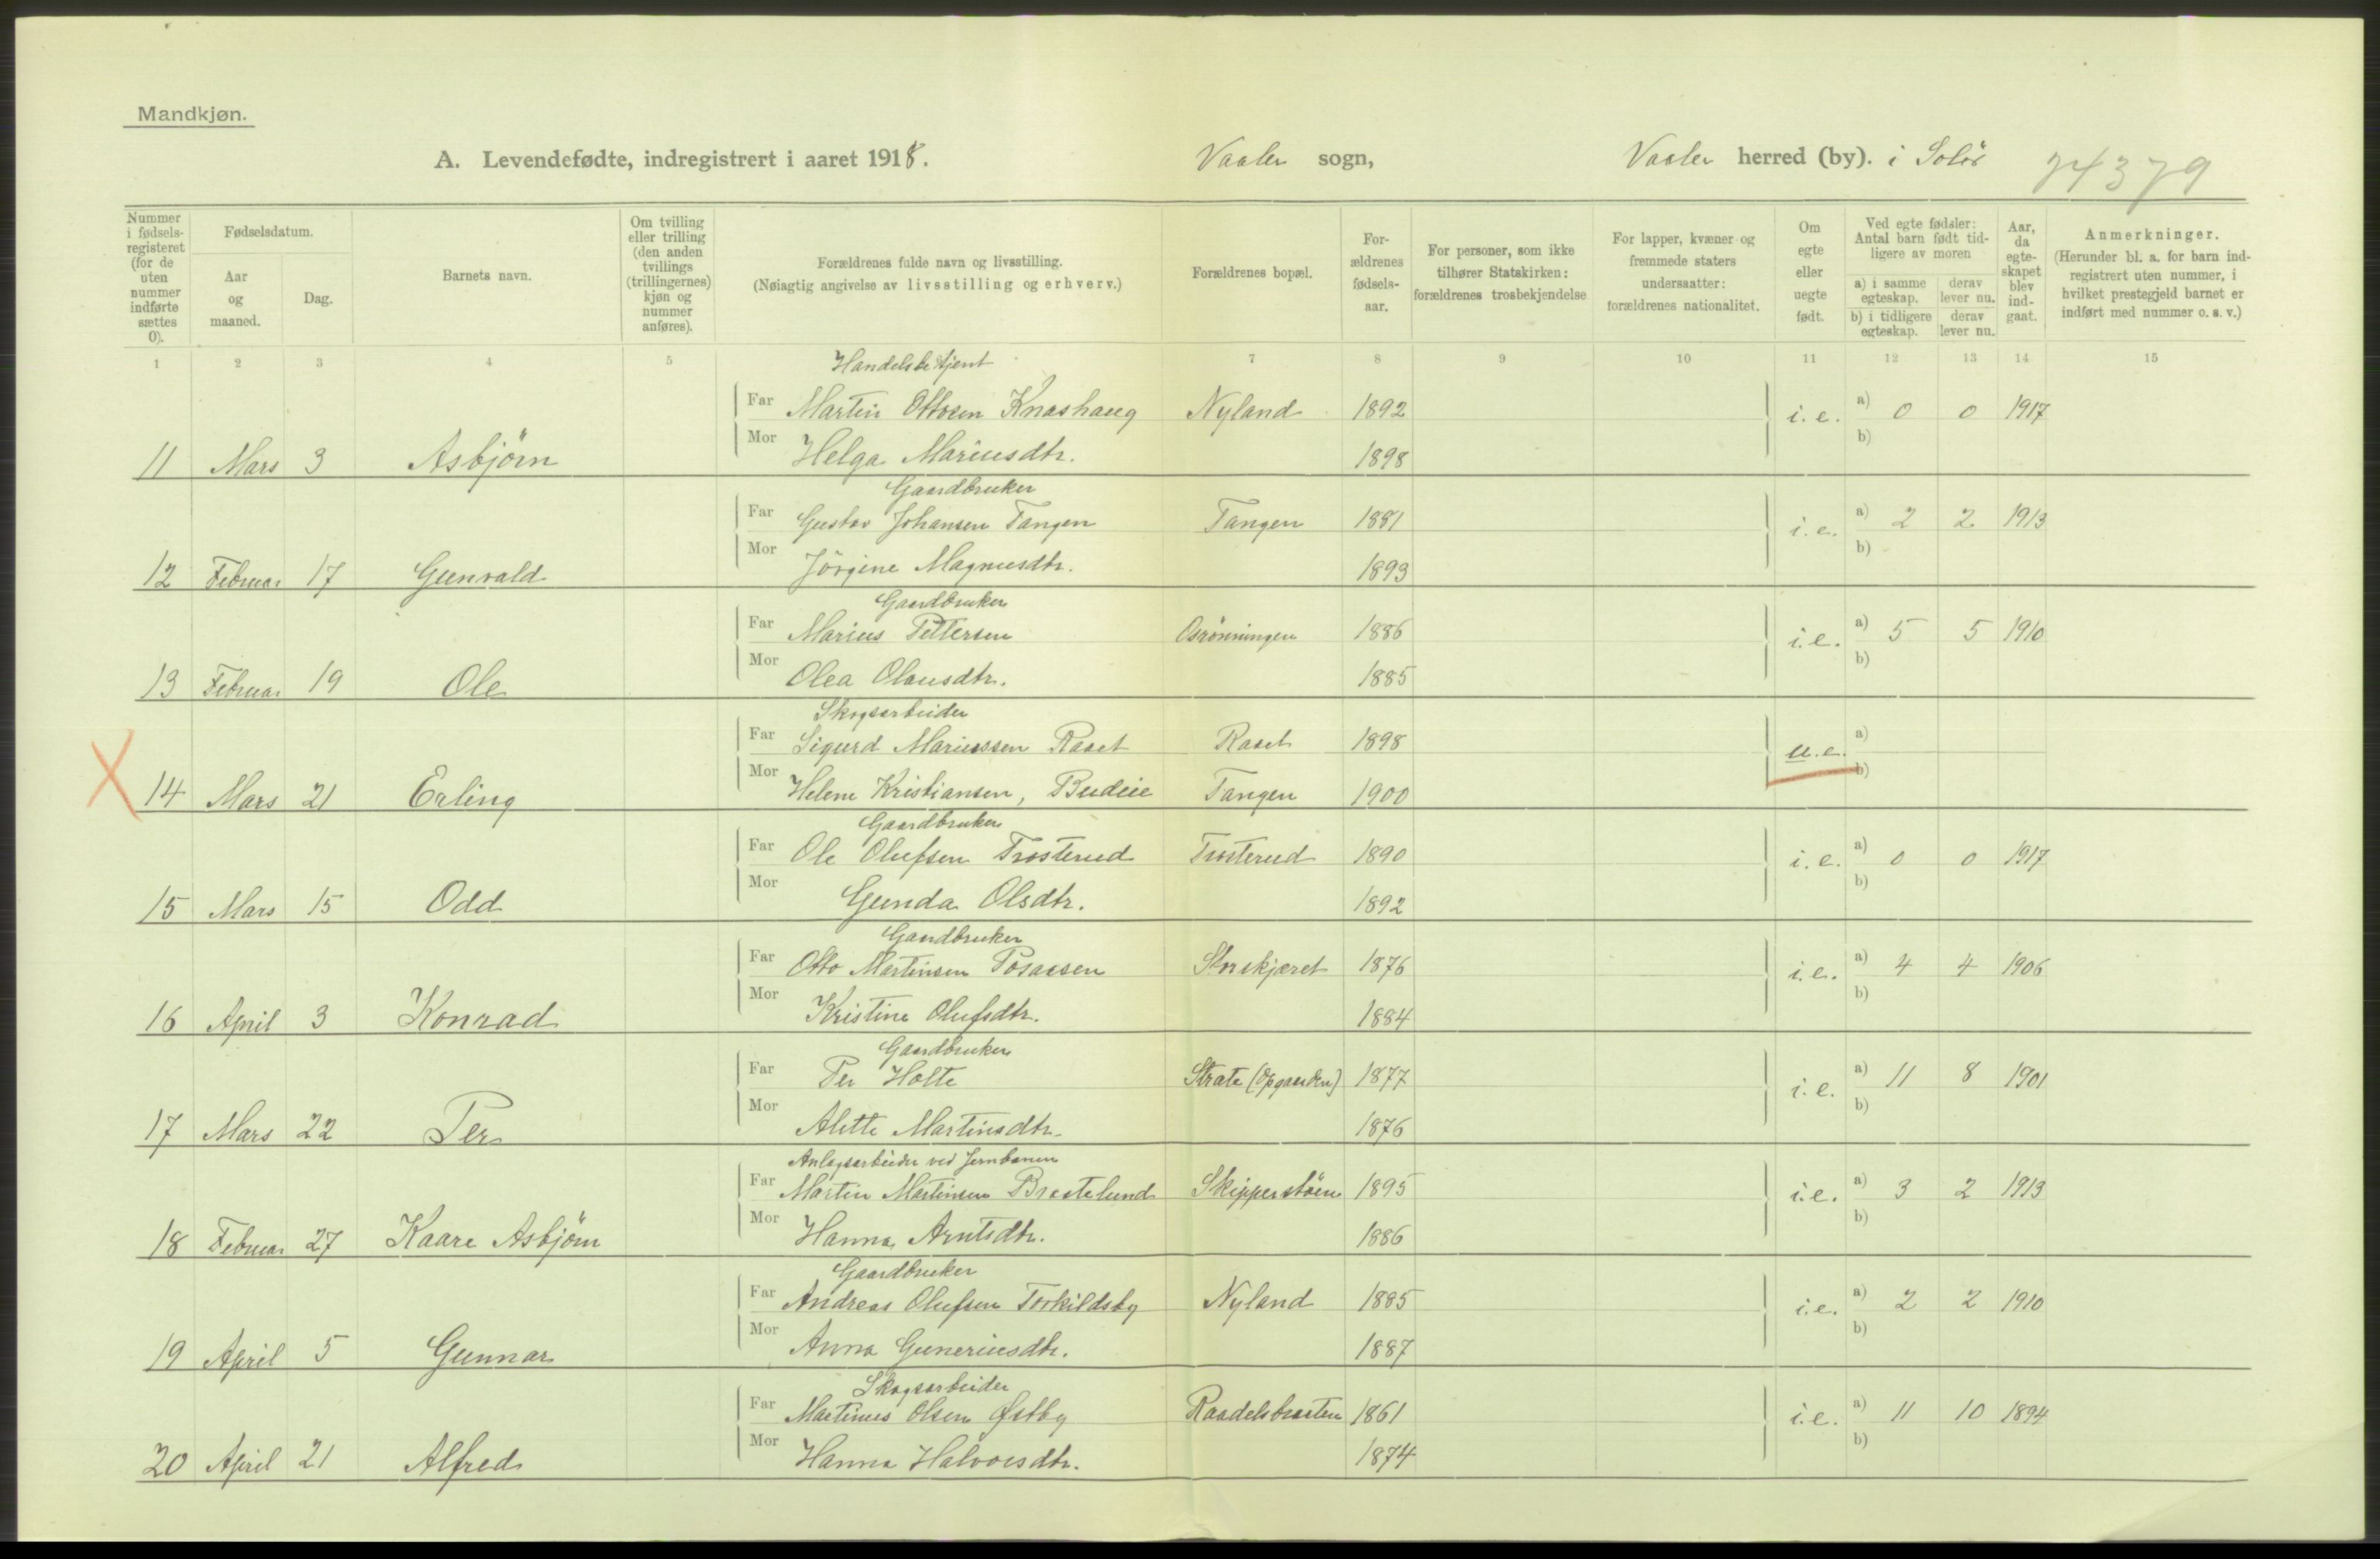 Mandkjøn.
A. Levendefødte, indregistrert i aaret 1918. Vaaler sogn, Vaaler herred (by). i Solör 74379
Nummer i fødsels-registeret (for de uten nummer indførte sættes 0).
Fødselsdatum.
Aar og maaned.
Dag.
Barnets navn.
Om tvilling eller trilling (den anden tvillings (trillingernes) kjøn og nummer anføres).
Forældrenes fulde navn og livsstilling.
(Nøiagtig angivelse av livsstilling og erhverv.)
Forældrenes bopæl.
For-ældrenes fødsels-aar.
For personer, som ikke tilhører Statskirken: forældrenes trosbekjendelse
For lapper, kvæner og fremmede staters undersaatter: forældrenes nationalitet.
Om egte eller uegte født.
Ved egte fødsler: Antal barn født tid-ligere av moren
a) i samme egteskap. derav lever nu.
b) i tidligere egteskap. derav lever nu.
Aar, da egte-skapet blev ind-gaat.
Anmerkninger.
(Herunder bl. a. for barn ind-registrert uten nummer, i hvilket prestegjeld barnet er indført med nummer o. s. v.)
1 2 3 4 5 7 8 9 10 11 12 13 14 15
Handelsbetjent
Far Martin Ottosen Knashaug Nyland 1892 i. e. a) 0 0 1917
b)
11 Mars 3 Asbjörn Mor Helga Mariusdtr. 1898
Gaardbruker
Far Gustav Johansen Tangen Tangen 1881 i. e. a) 2 2 1913
b)
12 Februar 17 Gunvald Mor Jörgine Magnusdtr. 1893
Gaardbruker
Far Marius Pettersen Osrönningen 1886 i.e. a) 5 5 1910
b)
13 Februar 19 Ole Mor Olea Olausdtr. 1885
Skogsarbeider
Far Sigurd Mariussen Raset Raset 1898 u.e. a)
b)
X 14 Mars 21 Erling Mor Helene Kristiansen, Budeie Tangen 1900
Gaardbruker
Far Ole Olufsen Trosterud Trosterud 1890 i. e. a) 0 0 1917
b)
15 Mars 15 Odd Mor Gunda Olsdtr. 1892
Gaardbruker
Far Otto Martinsen Posaasen Storskjæret 1876 i.e. a) 4 4 1906
b)
16 April 3 Konrad Mor Kristine Olufsdtr. 1884
Gaardbruker
Far Per Holte Strate (Opgaarden) 1877 i. e. a) 11 8 1901
b)
17 Mars 22 Per Mor Alette Martinsdtr. 1876
Anlegsarbeider ved Jernbanen
Far Martin Martinsen Braatelund Skipperstöen 1895 i.e. a) 3 2 1913
b)
18 Februar 27 Kaare Asbjörn Mor Hanna Arntsdtr. 1886
Gaardbruker
Far Andreas Olufsen Torkildsby Nyland 1885 i.e. a) 2 2 1910
b)
19 April 5 Gunnar Mor Anna Guneriusdtr. 1887
Skogsarbeider
Far Martinus Olsen Østby Raadelsbraaten 1861 i.e. a) 11 10 1894
b)
20 April 21 Alfred Mor Hanna Halvorsdtr. 1874